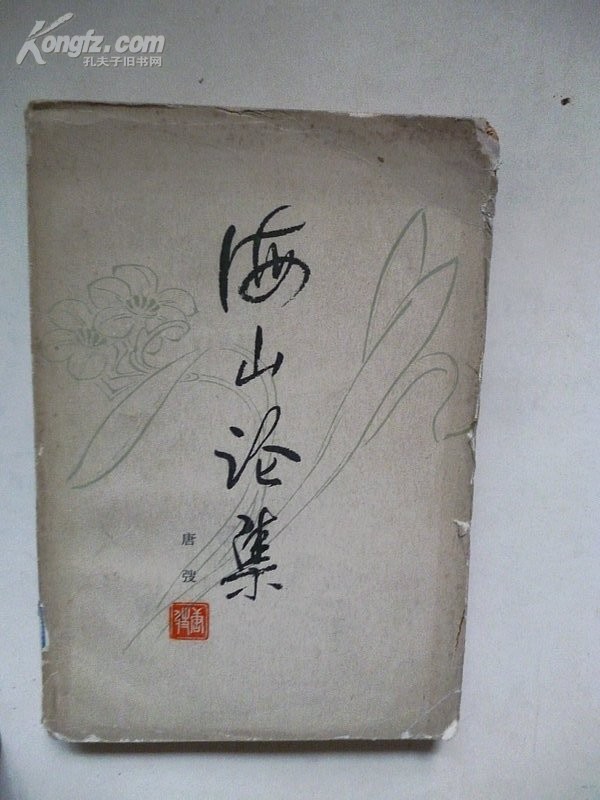 Kongfz.com
孔夫子旧书网
海山论集
唐弢